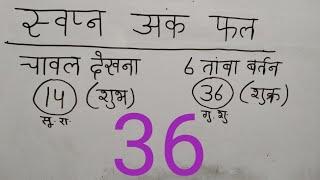 स्वप्न अंक फल
चावल देखना
14 (शुभ)
सू. रा.
6 तांबा बर्तन
36 (शुक्र)
गु. शु.
36